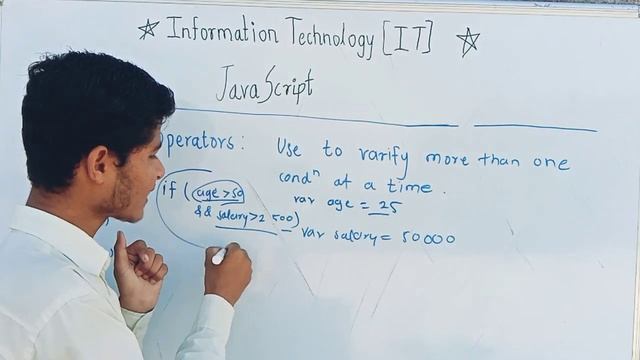 ☆ Information Technology [IT] ☆
JavaScript
perators: Use to varify more than one
condⁿ at a time.
var age = 25
if (age >50
&& salary>2500)
var salary = 50000